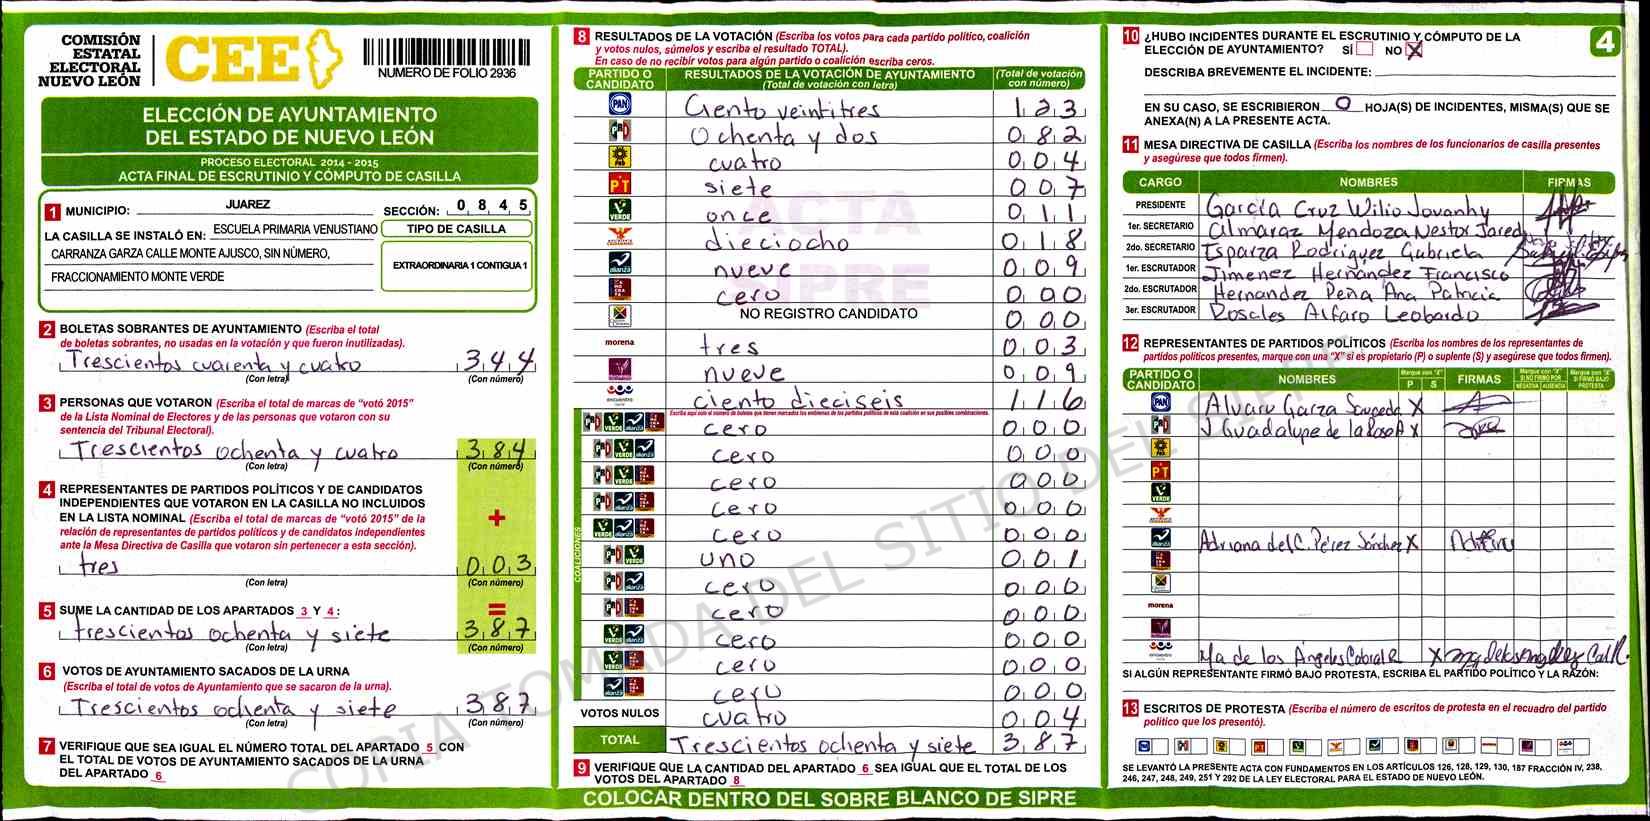 COMISIÓN
ESTATAL
ELECTORAL
NUEVO LEÓN
CEE
NUMERO DE FOLIO 2936
ELECCIÓN DE AYUNTAMIENTO
DEL ESTADO DE NUEVO LEÓN
PROCESO ELECTORAL 2014 - 2015
ACTA FINAL DE ESCRUTINIO Y CÓMPUTO DE CASILLA
1 MUNICIPIO: JUAREZ SECCIÓN: 0 8 4 5
LA CASILLA SE INSTALÓ EN: ESCUELA PRIMARIA VENUSTIANO
CARRANZA GARZA CALLE MONTE AJUSCO, SIN NÚMERO,
FRACCIONAMIENTO MONTE VERDE
TIPO DE CASILLA
EXTRAORDINARIA 1 CONTIGUA 1
2 BOLETAS SOBRANTES DE AYUNTAMIENTO (Escriba el total
de boletas sobrantes, no usadas en la votación y que fueron inutilizadas).
Trescientos cuarenta y cuatro 3 4 4
(Con letra) (Con número)
3 PERSONAS QUE VOTARON (Escriba el total de marcas de "votó 2015"
de la Lista Nominal de Electores y de las personas que votaron con su
sentencia del Tribunal Electoral).
Trescientos ochenta y cuatro 3 8 4
(Con letra) (Con número)
4 REPRESENTANTES DE PARTIDOS POLÍTICOS Y DE CANDIDATOS
INDEPENDIENTES QUE VOTARON EN LA CASILLA NO INCLUIDOS
EN LA LISTA NOMINAL (Escriba el total de marcas de "votó 2015" de la
relación de representantes de partidos políticos y de candidatos independientes
ante la Mesa Directiva de Casilla que votaron sin pertenecer a esta sección).
+
tres 0 0 3
(Con letra) (Con número)
5 SUME LA CANTIDAD DE LOS APARTADOS 3 Y 4 : =
trescientos ochenta y siete 3 8 7
(Con letra) (Con número)
6 VOTOS DE AYUNTAMIENTO SACADOS DE LA URNA
(Escriba el total de votos de Ayuntamiento que se sacaron de la urna).
Trescientos ochenta y siete 3 8 7
(Con letra) (Con número)
7 VERIFIQUE QUE SEA IGUAL EL NÚMERO TOTAL DEL APARTADO 5 CON
EL TOTAL DE VOTOS DE AYUNTAMIENTO SACADOS DE LA URNA
DEL APARTADO 6
8 RESULTADOS DE LA VOTACIÓN (Escriba los votos para cada partido político, coalición
y votos nulos, súmelos y escriba el resultado TOTAL).
En caso de no recibir votos para algún partido o coalición escriba ceros.
PARTIDO O CANDIDATO RESULTADOS DE LA VOTACIÓN DE AYUNTAMIENTO (Total de votación con letra) (Total de votación con número)
PAN Ciento veintitres 1 2 3
PRD Ochenta y dos 0 8 2
PRD cuatro 0 0 4
PT siete 0 0 7
VERDE once 0 1 1
dieciocho 0 1 8
alianza nueve 0 0 9
cero 0 0 0
NO REGISTRO CANDIDATO 0 0 0
morena tres 0 0 3
nueve 0 0 9
encuentro ciento dieciseis 1 1 6
Escriba aquí solo el número de boletas que tienen marcados los emblemas de los partidos políticos de esta coalición en sus posibles combinaciones.
COALICIONES
cero 0 0 0
cero 0 0 0
cero 0 0 0
cero 0 0 0
cero 0 0 0
uno 0 0 1
cero 0 0 0
cero 0 0 0
cero 0 0 0
cero 0 0 0
cero 0 0 0
VOTOS NULOS cuatro 0 0 4
TOTAL Trescientos ochenta y siete 3 8 7
9 VERIFIQUE QUE LA CANTIDAD DEL APARTADO 6 SEA IGUAL QUE EL TOTAL DE LOS
VOTOS DEL APARTADO 8
COLOCAR DENTRO DEL SOBRE BLANCO DE SIPRE
ACTA
SIPRE
COPIA TOMADA DEL SITIO DEL SIPRE
10 ¿HUBO INCIDENTES DURANTE EL ESCRUTINIO Y CÓMPUTO DE LA
ELECCIÓN DE AYUNTAMIENTO? SÍ NO X
4
DESCRIBA BREVEMENTE EL INCIDENTE:
EN SU CASO, SE ESCRIBIERON 0 HOJA(S) DE INCIDENTES, MISMA(S) QUE SE
ANEXA(N) A LA PRESENTE ACTA.
11 MESA DIRECTIVA DE CASILLA (Escriba los nombres de los funcionarios de casilla presentes
y asegúrese que todos firmen).
CARGO NOMBRES FIRMAS
PRESIDENTE García Cruz Wilio Jovanhy
1er. SECRETARIO Almaraz Mendoza Nestor Jared
2do. SECRETARIO Esparza Rodriguez Gabriela
1er. ESCRUTADOR Jimenez Hernandez Francisco
2do. ESCRUTADOR Hernandez Peña Ana Patricia
3er. ESCRUTADOR Rosales Alfaro Leobardo
12 REPRESENTANTES DE PARTIDOS POLÍTICOS (Escriba los nombres de los representantes de
partidos políticos presentes, marque con una "X" si es propietario (P) o suplente (S) y asegúrese que todos firmen).
PARTIDO O CANDIDATO NOMBRES Marque con "X" P S FIRMAS Marque con "X" SI NO FIRMÓ POR NEGATIVA AUSENCIA Marque con "X" SI FIRMÓ BAJO PROTESTA
PAN Alvaro Garza Sauceda X
J Guadalupe de la Rosa A X
PRD
PT
VERDE
alianza Adriana del C. Pérez Sánchez X
morena
encuentro Ma de los Angeles Cabral R X
SI ALGÚN REPRESENTANTE FIRMÓ BAJO PROTESTA, ESCRIBA EL PARTIDO POLÍTICO Y LA RAZÓN:
13 ESCRITOS DE PROTESTA (Escriba el número de escritos de protesta en el recuadro del partido
político que los presentó).
SE LEVANTÓ LA PRESENTE ACTA CON FUNDAMENTOS EN LOS ARTÍCULOS 126, 128, 129, 130, 187 FRACCIÓN IV, 238,
246, 247, 248, 249, 251 Y 292 DE LA LEY ELECTORAL PARA EL ESTADO DE NUEVO LEÓN.